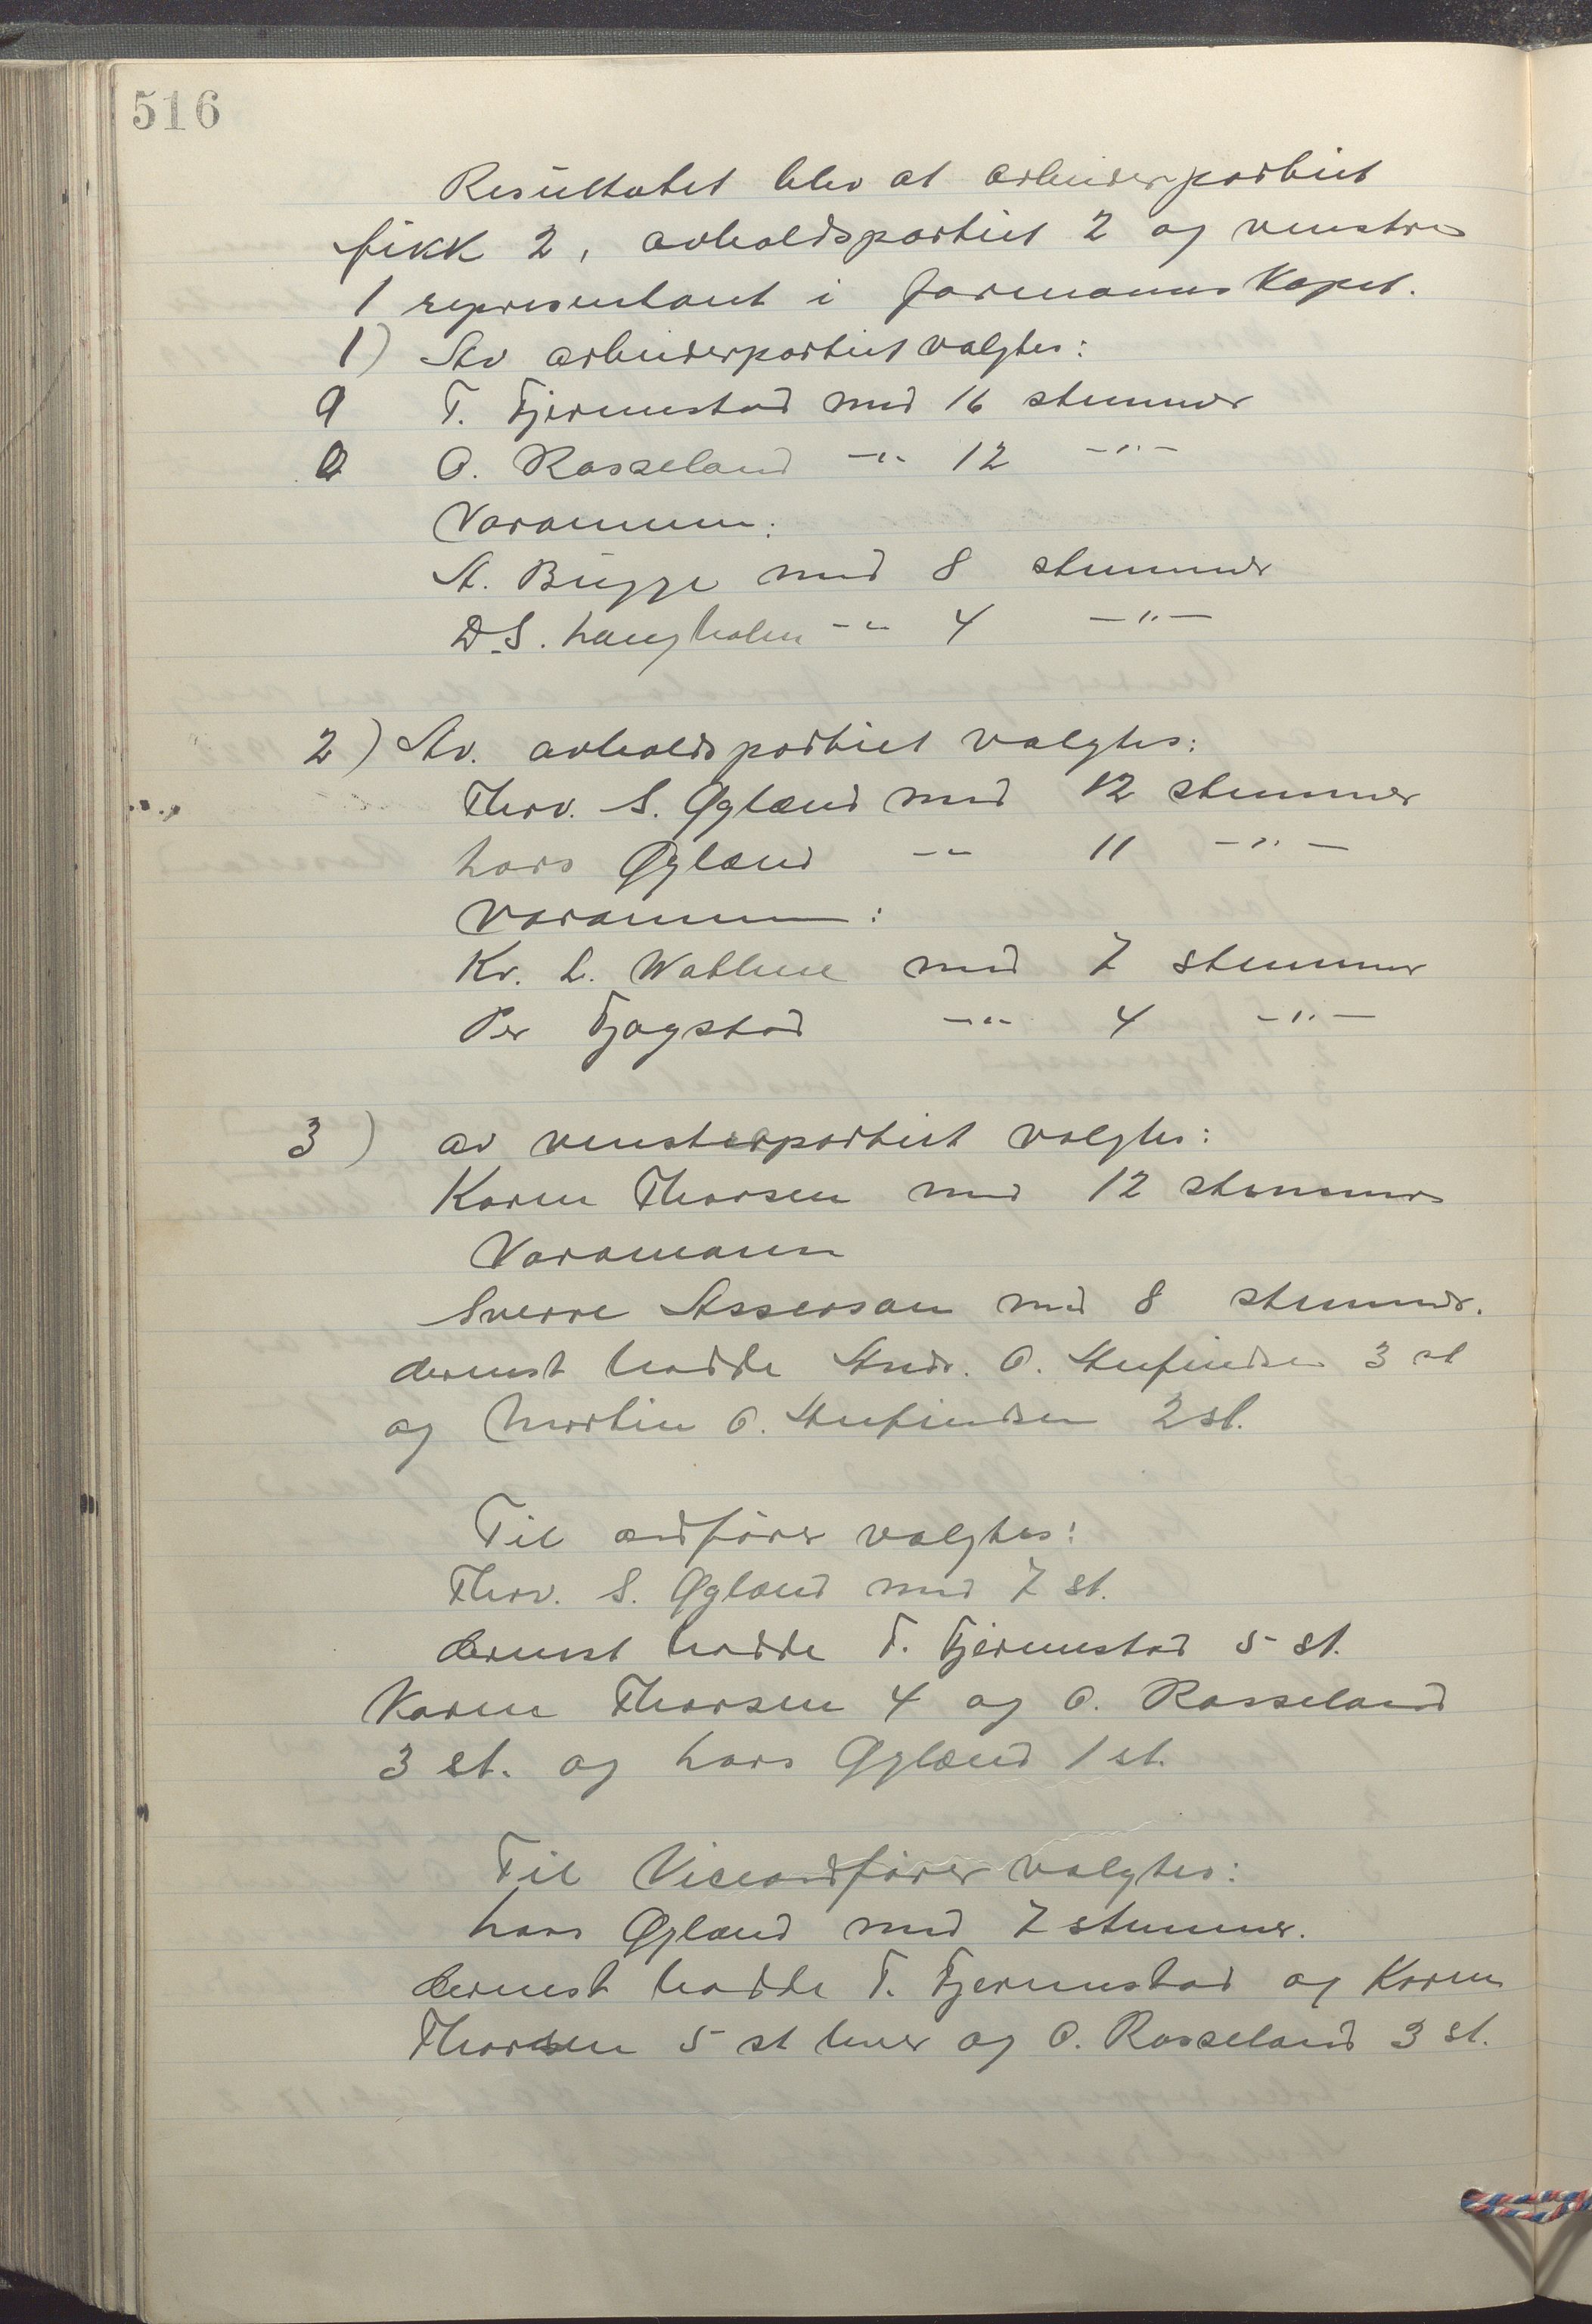 516
Resultatet blev at arbeiderpartiet
fikk 2, avholdspartiet 2 og venstre
1 representant i formannskapet.
1) Av arbeiderpartiet valgtes:
T. Tjermestad med 16 stemmer
O. Rosseland -"- 12 -"-
Varamenn:
A. Bugge med 8 stemmer
D. S. Langholm -"- 4 -"-
2) Av. avholdspartiet valgtes:
Thov. S. Øgland med 12 stemmer
Lars Øgland -"- 11 -"-
Varamenn:
Kr. L. Watlene med 7 stemmer
Per Tjogstad -"- 4 -"-
3) av venstrepartiet valgtes:
Karen Thorsen med 12 stemmer
Varamann
Sverre Asserson med 8 stemmer.
dernest hadde Andr. O. Stefensen 3 st
og Martin O. Stefensen 2 st.
Til ordfører valgtes:
Thov. S. Øgland med 7 st.
dernest hadde T. Tjermestad 5 st.
Karen Thorsen 4 og O. Rosseland
3 st. og Lars Øgland 1 st.
Til Viceordfører valgtes:
Lars Øgland med 7 stemmer.
dernest hadde T. Tjermestad og Karen
Thorsen 5 st hver og O. Rosseland 3 st.